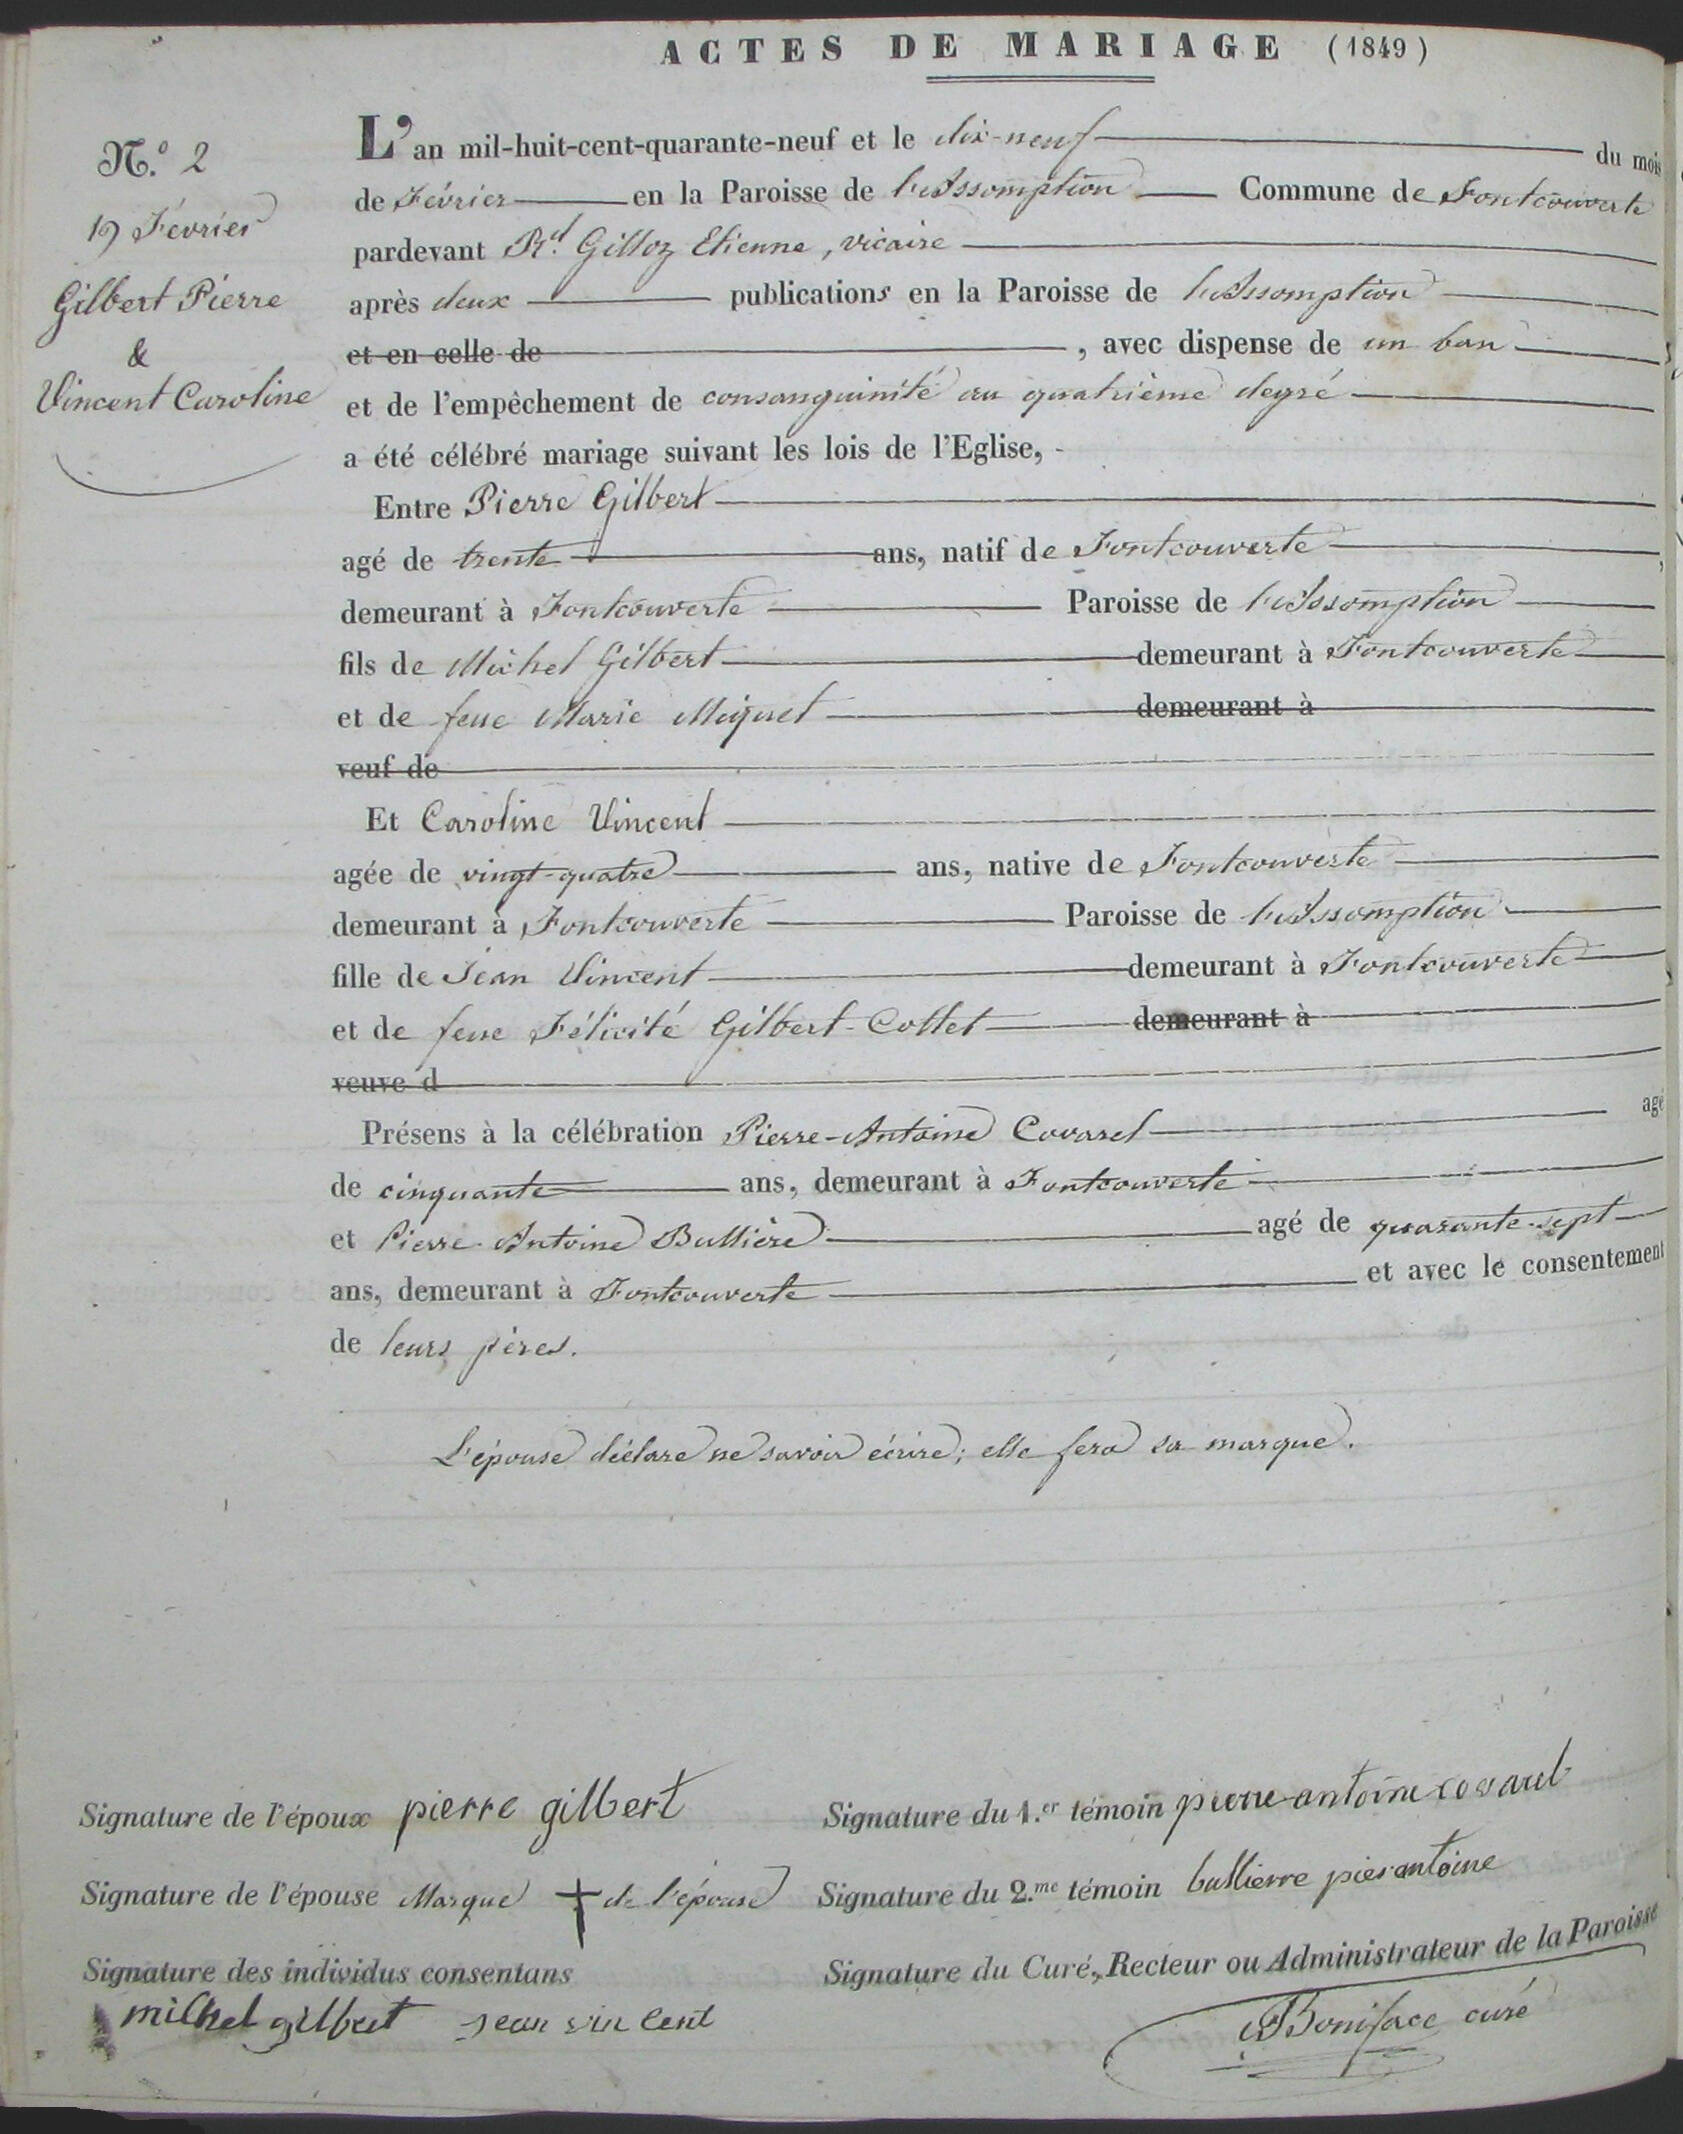 ACTES DE MARIAGE (1849)
N.º 2
19 Février
Gilbert Pierre
&
Vincent Caroline
L'an mil-huit-cent-quarante-neuf et le dix-neuf du mois
de Février en la Paroisse de l'Assomption Commune de Fontcouverte
pardevant Rd. Gilloz Etienne, vicaire
après deux publications en la Paroisse de l'Assomption
et en celle de , avec dispense de un ban
et de l'empêchement de consanguinité au quatrième degré
a été célébré mariage suivant les lois de l'Eglise,
Entre Pierre Gilbert
agé de trente ans, natif de Fontcouverte
demeurant à Fontcouverte Paroisse de l'Assomption
fils de Michel Gilbert demeurant à Fontcouverte
et de feue Marie Miquet demeurant à
veuf de
Et Caroline Vincent
agée de vingt-quatre ans, native de Fontcouverte
demeurant à Fontcouverte Paroisse de l'Assomption
fille de Jean Vincent demeurant à Fontcouverte
et de feue Félicité Gilbert-Collet demeurant à
veuve d
Présens à la célébration Pierre-Antoine Covarel agé
de cinquante ans, demeurant à Fontcouverte
et Pierre-Antoine Bullière agé de quarante-sept
ans, demeurant à Fontcouverte et avec le consentement
de leurs pères.
L'épouse déclare ne savoir écrire; elle fera sa marque.
Signature de l'époux pierre gilbert
Signature du 1.er témoin pierre antoine covarel
Signature de l'épouse Marque + de l'épouse
Signature du 2.me témoin bullierre pierantoine
Signature des individus consentans
michel gilbert jean vincent
Signature du Curé, Recteur ou Administrateur de la Paroisse
Boniface curé